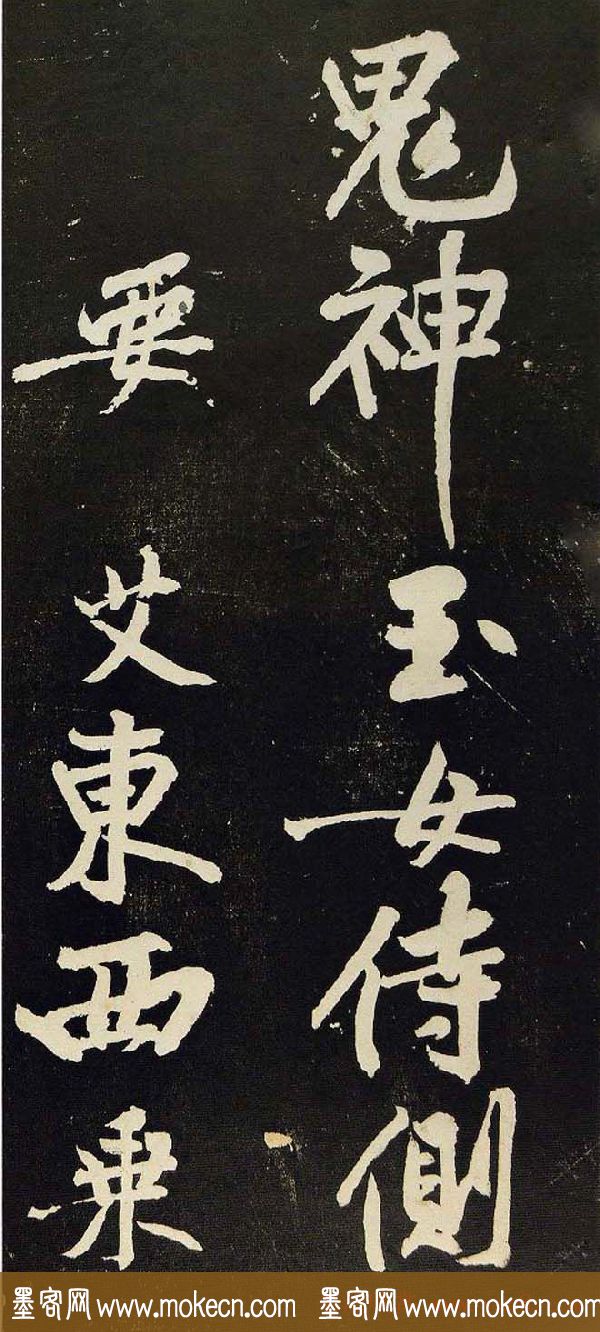 鬼神玉女侍側
要艾東西乗
墨客网 www.mokecn.com 墨客网 www.mokecn.com